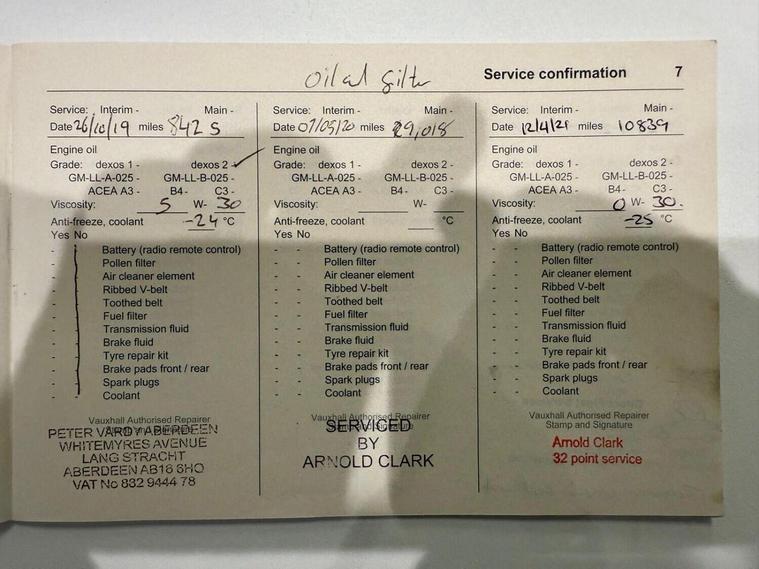 Oil and filter
Service confirmation 7
Service: Interim - Main -
Date 26/10/19 miles 8425
Engine oil
Grade: dexos 1 - dexos 2 -
GM-LL-A-025 - GM-LL-B-025 -
ACEA A3 - B4 - C3 -
Viscosity: 5 W- 30
Anti-freeze, coolant -24 °C
Yes No
- Battery (radio remote control)
- Pollen filter
- Air cleaner element
- Ribbed V-belt
- Toothed belt
- Fuel filter
- Transmission fluid
- Brake fluid
- Tyre repair kit
- Brake pads front / rear
- Spark plugs
- Coolant
Vauxhall Authorised Repairer
PETER VARDY ABERDEEN
WHITEMYRES AVENUE
LANG STRACHT
ABERDEEN AB16 6HQ
VAT No 832 9444 78
Service: Interim - Main -
Date 07/05/20 miles 29,018
Engine oil
Grade: dexos 1 - dexos 2 -
GM-LL-A-025 - GM-LL-B-025 -
ACEA A3 - B4 - C3 -
Viscosity: W-
Anti-freeze, coolant °C
Yes No
- - Battery (radio remote control)
- - Pollen filter
- - Air cleaner element
- - Ribbed V-belt
- - Toothed belt
- - Fuel filter
- - Transmission fluid
- - Brake fluid
- - Tyre repair kit
- - Brake pads front / rear
- - Spark plugs
- - Coolant
Vauxhall Authorised Repairer
SERVICED
BY
ARNOLD CLARK
Service: Interim - Main -
Date 12/4/21 miles 10839
Engine oil
Grade: dexos 1 - dexos 2 -
GM-LL-A-025 - GM-LL-B-025 -
ACEA A3 - B4 - C3 -
Viscosity: 0 W- 30.
Anti-freeze, coolant -25 °C
Yes No
- - Battery (radio remote control)
- - Pollen filter
- - Air cleaner element
- - Ribbed V-belt
- - Toothed belt
- - Fuel filter
- - Transmission fluid
- - Brake fluid
- - Tyre repair kit
- - Brake pads front / rear
- - Spark plugs
- - Coolant
Vauxhall Authorised Repairer
Stamp and Signature
Arnold Clark
32 point service